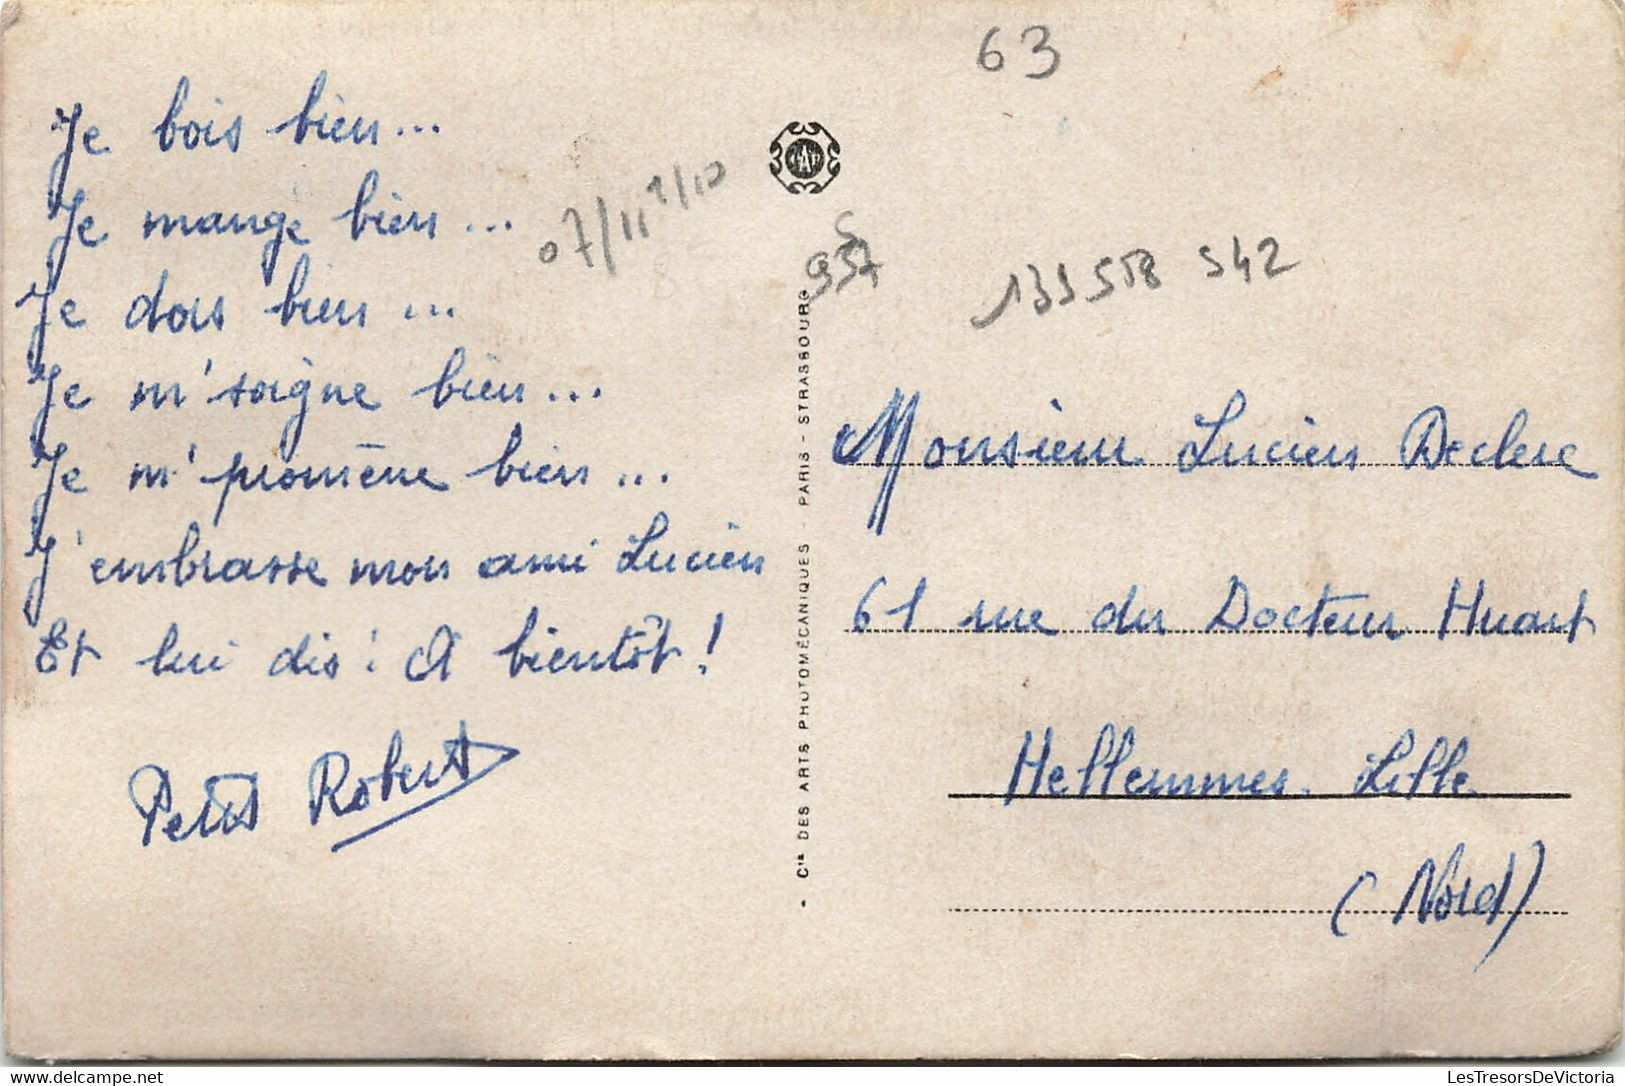 63
Je bois bien...
Je mange bien...
Je dors bien...
Je m'soigne bien...
Je m'promène bien...
J'embrasse mon ami Lucien
Et lui dis : A bientôt !
Petit Robert
CAP
Cie DES ARTS PHOTOMÉCANIQUES - PARIS - STRASBOURG
Monsieur Lucien Declerc
61 rue du Docteur Huart
Hellemmes. Lille
(Nord)
delcampe.net
LesTresorsDeVictoria